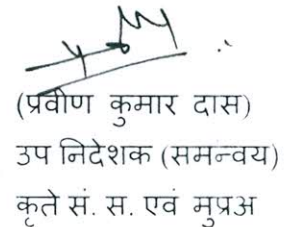 (प्रवीण कुमार दास)
उप निदेशक (समन्वय)
कृते सं. स. एवं मुप्रअ